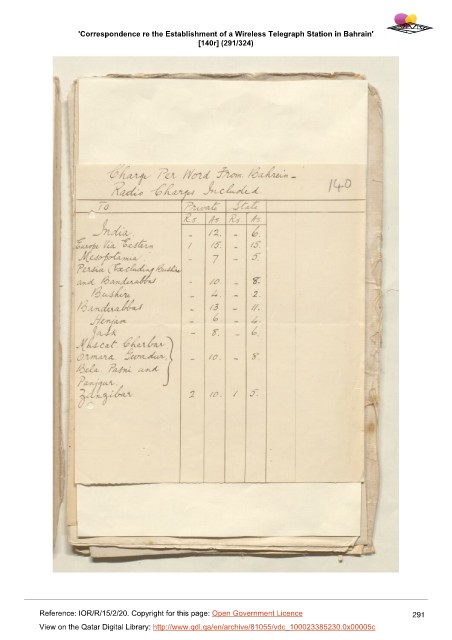 'Correspondence re the Establishment of a Wireless Telegraph Station in Bahrain'
[140r] (291/324)
Charge Per Word From Bahrein -
Radio Charge Included
140
To Private State
Rs As Rs As
India - 12. - 6.
Europe Via Eastern 1 15. - 15.
Mesopotamia - 7 - 5.
Persia (Excluding Bushire
and Banderabbas - 10. - 8.
Bushire - 4. - 2.
Banderabbas - 13 - 11.
Henjam - 6 - 4.
Jask - 8. - 6.
Muscat Charbar
Ormara, Gwadur, - 10. - 8.
Bela Pasni and
Panjgur,
Zanzibar 2 10. 1 5.
Reference: IOR/R/15/2/20. Copyright for this page: Open Government Licence
291
View on the Qatar Digital Library: http://www.qdl.qa/en/archive/81055/vdc_100023385230.0x00005c